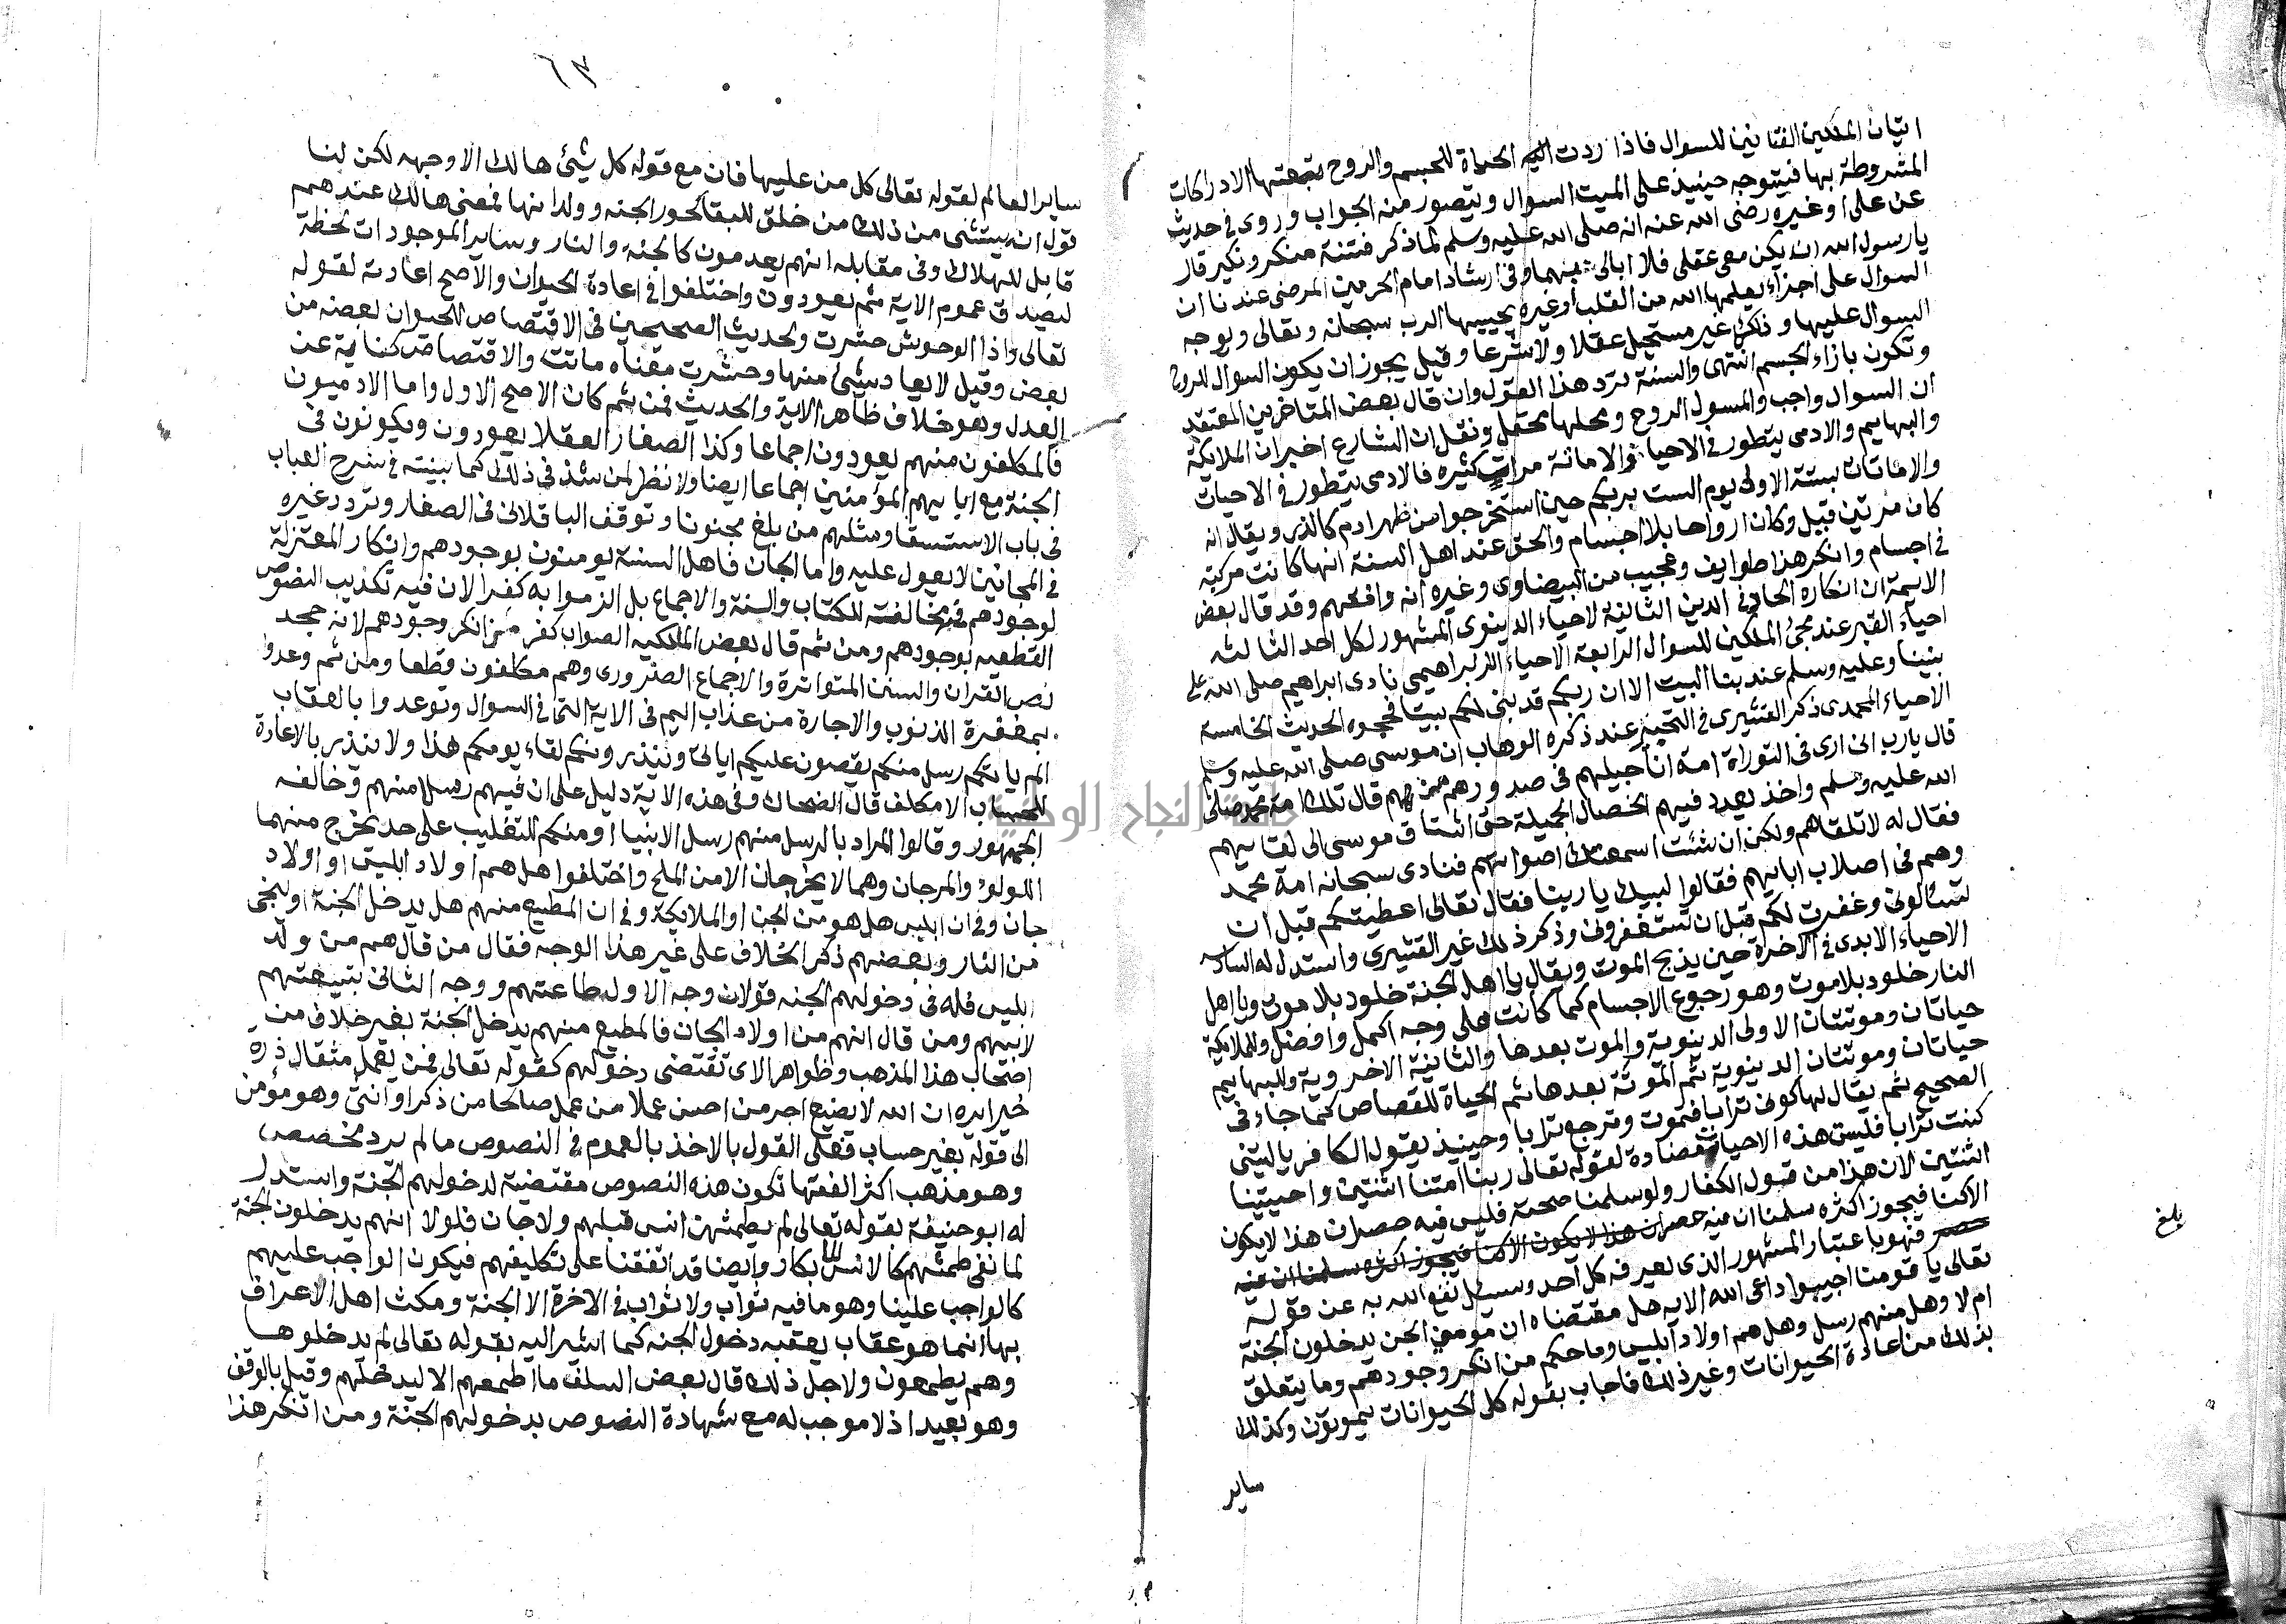 اتيان الملكين الفتانين للسوال فاذا ردت اليه الحياة للجسم والروح تبعتها الادراكات
المشروطة بها فيتوجه حينيذ على الميت السوال ويتصور منه الجواب وروى في حديث
عن على او غيره رضى الله عنه انه صلى الله عليه وسلم لما ذكر فتنة منكر ونكير قال
يا رسول الله ان يكن معى عقلى فلا ابالى بهما وفى ارشاد امام الحرمين المرضى عندنا ان
السوال على اجزاء يعلمها الله من القلب او غيره يحييها الرب سبحانه وتعالى ويوجه
السوال عليها وذلك غير مستحيل عقلا ولا شرعا وقيل يجوز ان يكون السوال للروح
وتكون بازاء الجسم انتهى والسنة ترد هذا القول وان قال بعض المتاخرين المعتقد
ان السوال واجب والمسول الروح ومحلها محتمل ونقل ان الشارع اخبر ان الملايكة
والبهايم والادمى يتطور فى الاحيا والاماتة مرات كثيره فالادمى يتطور فى الاحيات
والاماتات ستة الاولى يوم الست بربكم حين استخرجوا من ظهر ادم كالذر ويقال انه
كان مرتين قيل وكان ارواحا بلا اجسام والحق عند اهل السنة انها كانت مركبة
فى اجسام وانكر هذا طوايف وعجيب من البيضاوى وغيره انه وافقهم وقد قال بعض
الايمة ان انكاره الحاد فى الدين الثانية الاحياء الدينوى المشهور لكل احد الثالثه
احياء القبر عند مجئ الملكين للسوال الرابعة الاحياء الابراهيمى نادى ابراهيم صلى الله على
نبينا وعليه وسلم عند بنا البيت الا ان ربكم قد بنى لكم بيتا فحجوه الحديث الخامسة
الاحياء المحمدى ذكر القشيرى فى التحبير عند ذكره الوهاب ان موسى صلى الله عليه وسلم
قال يارب انى ارى فى التوراة امة اناجيلهم فى صدورهم فمن هم قال تلك امة محمد صلى
الله عليه وسلم واخذ يعدد فيهم الخصال الجميلة حتى اشتاق موسى الى لقايهم
فقال له لا تلقاهم ولكن ان شئت اسمعتك اصواتهم فنادى سبحانه امة محمد
وهم فى اصلاب ابايهم فقالوا لبيك يا ربنا فقال تعالى اعطيتكم قبل ان
تسألونى وغفرت لكم قبل ان تستغفرونى وذكر ذلك غير القشيرى واستدل له السادسه
الاحياء الابدى فى الاخرة حين يذبح الموت ويقال يا اهل الجنة خلود بلا موت ويا اهل
النار خلود بلا موت وهو رجوع الاجسام كما كانت على وجه اكمل وافضل وللملايكة
حياتان وموتتان الاولى الدينوية والموت بعدها والثانية الاخروية وللبهايم
حياتان وموتتان الدينوية ثم الموتة بعدها ثم الحياة للقصاص كما جاء فى
الصحيح ثم يقال لها كونى ترابا فتموت وترجع ترابا وحينيذ يقول الكافر ياليتنى
كنت ترابا فليس هذه الاحيات مضادة لقوله تعالى ربنا امتنا اثنتين واحييتنا
اثنتين لان هذا من قول الكفار ولو سلمنا صحته فليس فيه حصر ان هذا لا يكون
الا كذا فيجوز اكثره سلمنا ان فيه حصر ان هذا لا يكون الا كذا فيجوز اكثره سلمنا ان فيه
حصر فهو باعتبار المشهور الذى يعرفه كل احد وسئل نفع الله به عن قوله
تعالى يا قومنا اجيبوا داعى الله الايه هل مقتضاه ان مومنى الجن يدخلون الجنة
ام لا وهل منهم رسل وهل هم اولاد ابليس وما حكم من انكر وجودهم وما يتعلق
بذلك من اعادة الحيوانات وغير ذلك فاجاب بقوله كل الحيوانات يموتون وكذلك
ساير
بلغ
٦٣
ساير العالم لقوله تعالى كل من عليها فان مع قوله كل شيئ هالك الا وجهه لكن لنا
قول انه يستثنى من ذلك من خلق للبقا كحور الجنه وولدانها فمعنى هالك عندهم
قابل للهلاك وفى مقابله انهم يعدمون كالجنة والنار وساير الموجودات لحظة
ليصدق عموم الاية ثم يعودون واختلفوا فى اعادة الحيوان والاصح اعادته لقوله
تعالى واذا الوحوش حشرت ولحديث الصحيحين فى الاقتصاص للحيوان بعضه من
بعض وقيل لا يعاد شئ منها وحشرت معناه ماتت والاقتصاص كناية عن
العدل وهو خلاف ظاهر الاية والحديث فمن ثم كان الاصح الاول واما الادميون
فالمكلفون منهم يعودون اجماعا وكذا الصغار العقلا يعودون ويكونون فى
الجنة مع ابايهم المؤمنين اجماعا ايضا ولا نظر لمن شذ فى ذلك كما بينته فى شرح العباب
فى باب الاستسقا ومثلهم من بلغ مجنونا وتوقف الباقلانى فى الصغار وتردد غيره
فى المجانين لا يعول عليه واما الجان فاهل السنة يومنون بوجودهم وانكار المعتزلة
لوجودهم فيه مخالفة للكتاب والسنة والاجماع بل الزموا به كفرا لان فيه تكذيب النصوص
القطعيه بوجودهم ومن ثم قال بعض المالكيه الصواب كفر من انكر وجودهم لانه جحد
نص القران والسنن المتواترة والاجماع الضرورى وهم مكلفون قطعا ومن ثم وعدوا
بمغفرة الذنوب والاجارة من عذاب اليم فى الاية التى فى السوال وتوعدوا بالعقاب
الم ياتكم رسل منكم يقصون عليكم اياتى وينذرونكم لقاء يومكم هذا ولا ينذر بالاعادة
للحساب الا مكلف قال الضحاك وفى هذه الاية دليل على ان فيهم رسلا منهم وخالفه
الجمهور وقالوا المراد بالرسل منهم رسل الانبيا او منكم للتغليب على حد يخرج منهما
اللولو والمرجان وهما لا يخرجان الا من الملح واختلفوا هل هم اولاد ابليس او اولاد
جان وفى ان ابليس هل هو من الجن او الملايكة وفى ان المطيع منهم هل يدخل الجنة او ينجى
من النار وبعضهم ذكر الخلاف على غير هذا الوجه فقال من قال هم من ولد
ابليس فله فى دخولهم الجنه قولان وجه الاول طاعتهم ووجه الثانى تبعيتهم
لابيهم ومن قال انهم من اولاد الجان فالمطيع منهم يدخل الجنة بغير خلاف من
اصحاب هذا المذهب وظواهر الاى تقتضى دخولهم كقوله تعالى فمن يعمل مثقال ذرة
خيرا يره ان الله لا يضيع اجر من احسن عملا من عمل صالحا من ذكر او انثى وهو مؤمن
الى قوله بغير حساب فعلى القول بالاخذ بالعموم فى النصوص ما لم يرد مخصص
وهو مذهب اكثر الفقها تكون هذه النصوص مقتضية لدخولهم الجنة واستدل
له ابو حنيفة بقوله تعالى لم يطمثهن انس قبلهم ولا جان فلولا انهم يدخلون الجنة
لما نفى طمثهم كالانس بكار وايضا قد اتفقنا على تكليفهم فيكون الواجب عليهم
كالواجب علينا وهو ما فيه ثواب ولا ثواب فى الاخرة الا الجنة ومكث اهل الاعراف
بها انما هو عقاب يعقبه دخول الجنه كما اشير اليه بقوله تعالى لم يدخلوها
وهم يطمعون ولاجل ذلك قال بعض السلف ما اطمعهم الا ليدخلهم وقيل بالوقف
وهو بعيد اذ لا موجب له مع شهادة النصوص بدخولهم الجنة ومن انكر هذا
جامعة النجاح الوطنية